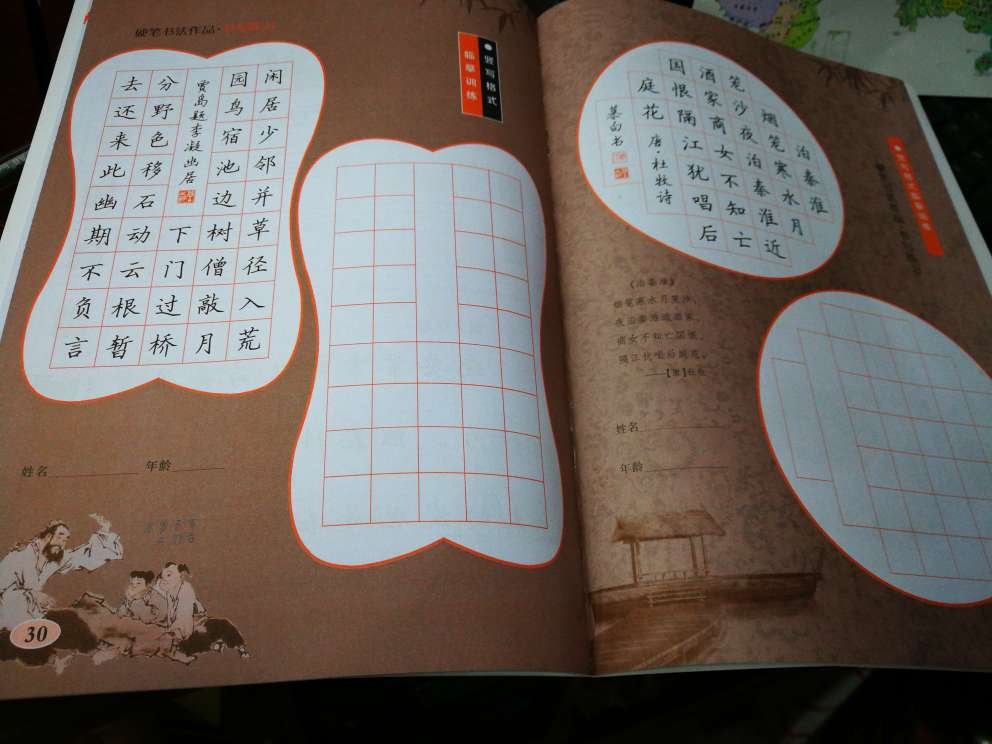 硬笔书法作品·
闲居少邻并草径入荒
园鸟宿池边树僧敲月
贾岛题李凝幽居
下门过桥
分野色移石动云根暂
去还来此幽期不负言
姓名 年龄
30
●竖写格式
临摹训练
泊秦淮
烟笼寒水月
笼沙夜泊秦淮近
酒家商女不知亡
国恨隔江犹唱后
庭花 唐杜牧诗
慕白书
《泊秦淮》
烟笼寒水月笼沙,
夜泊秦淮近酒家。
商女不知亡国恨,
隔江犹唱后庭花。
——【唐】杜牧
姓名
年龄